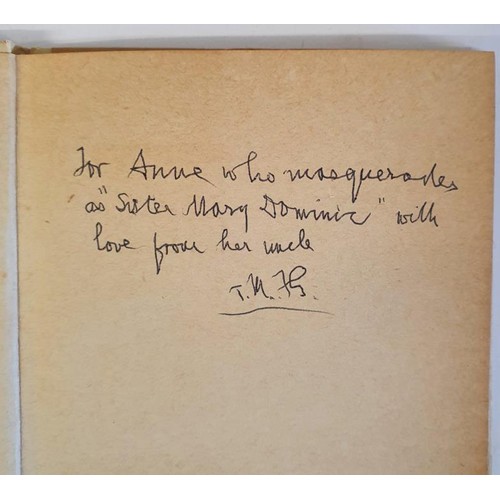 For Anne who masquerades
as "Sister Mary Dominic" with
love from her uncle
T.M.